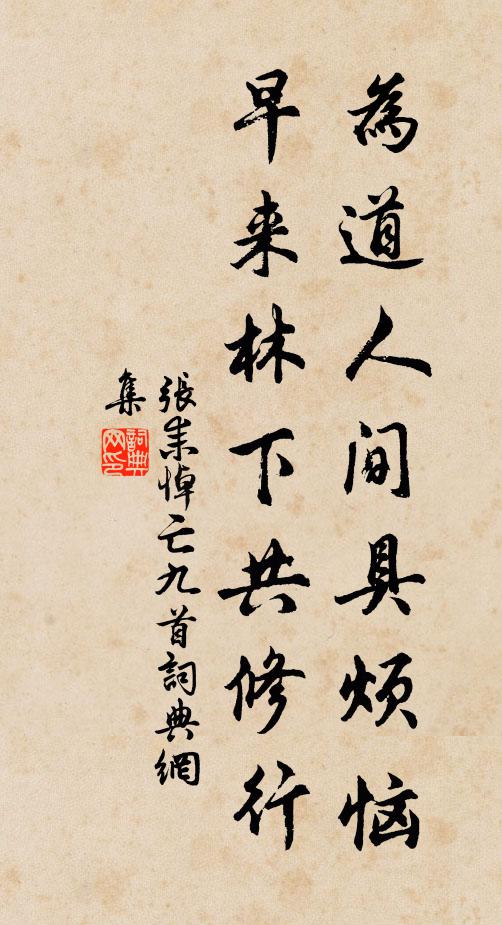 為道人间具烦恼
早来林下共修行
張耒悼亡九首詞典網
集
詞典網印